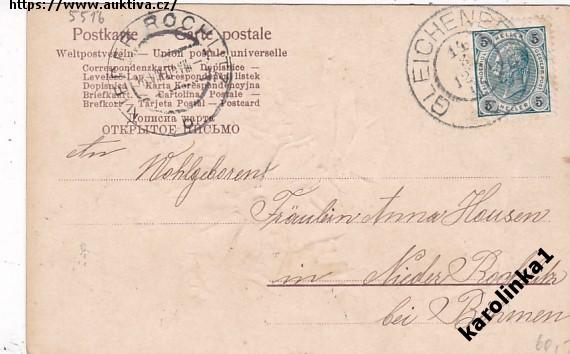 https://www.auktiva.cz/
5516
Postkarte — Carte postale
Weltpostverein — Union postale universelle
Correspondenzkarte — Dopisnice —
Levelező-Lap — Korespondenčni listek
Dopisnica — Karta Korespondencyjna
Briefkaart — Cartolina Postale —
Brefkort — Tarjeta Postal — Postcard
Дописна карта
ОТКРЫТОЕ ПИСЬМО
NIEDER ROCH
b
GLEICHENBE
14
12
5 5
5 5
An
Wohlgeborent
Fräulein Anna Hausen
in Nieder
bei
karolinka1
60,-